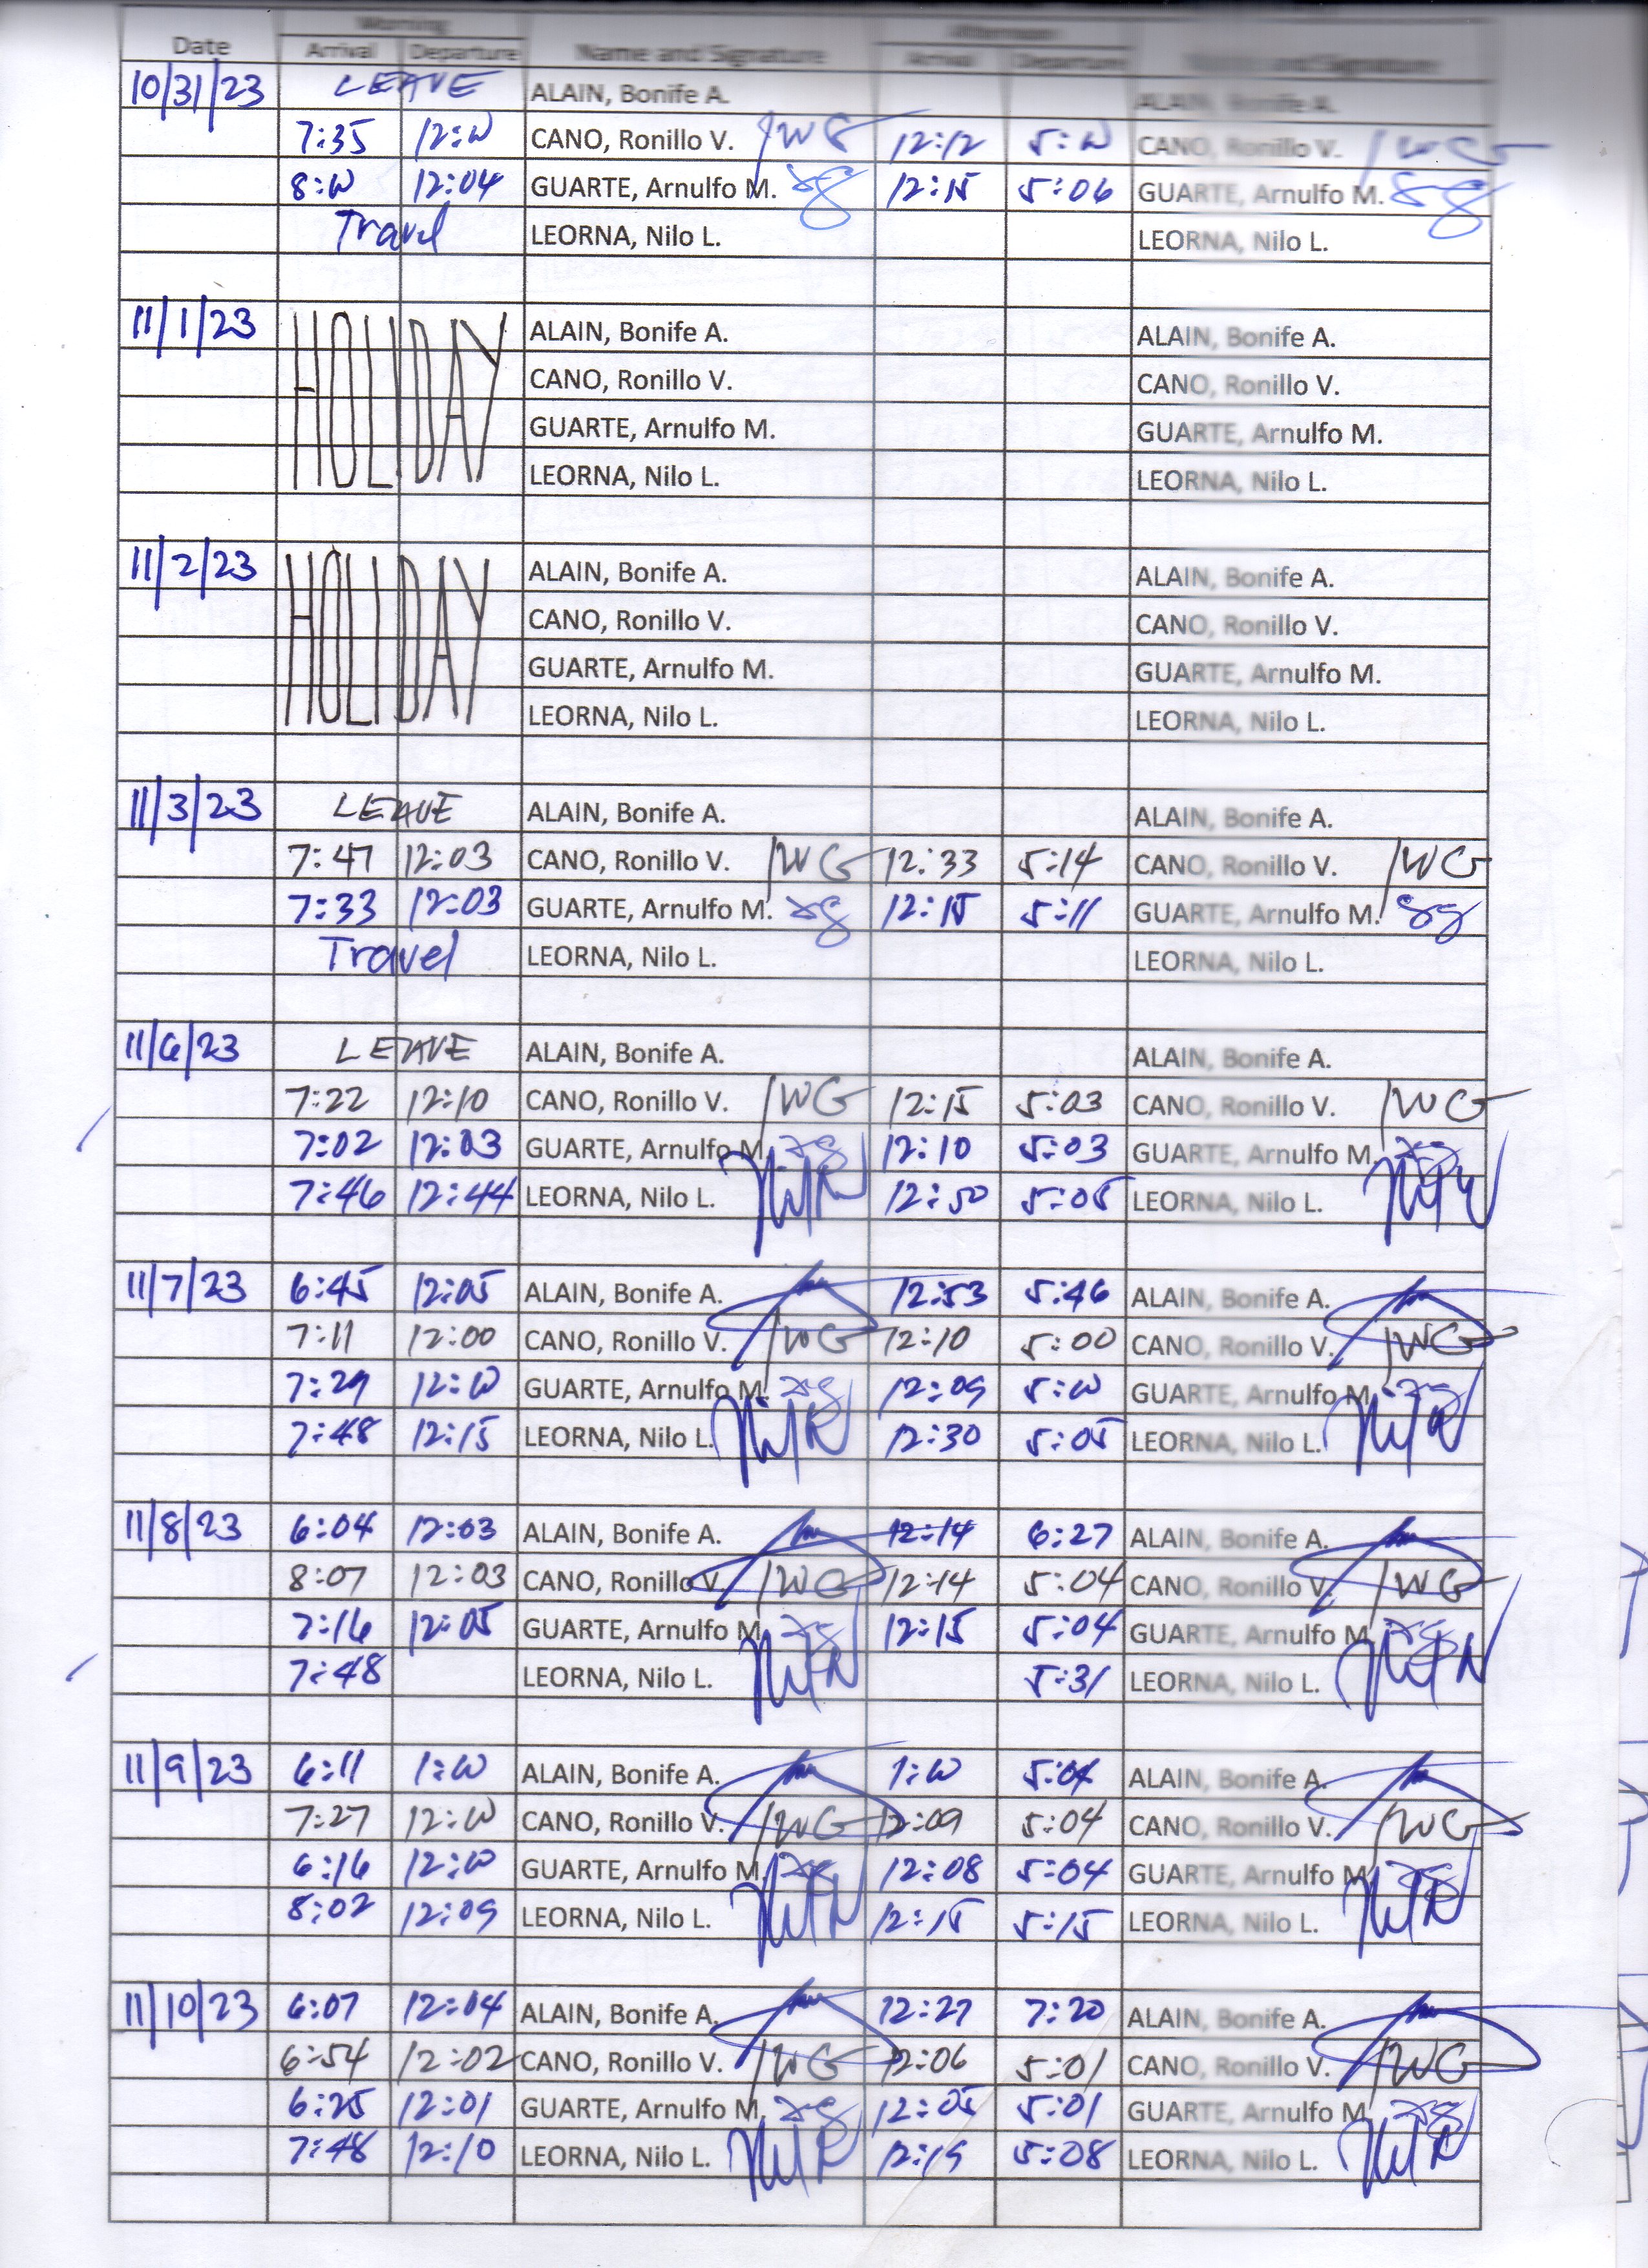 Morning Afternoon
Date Arrival Departure Name and Signature Arrival Departure Name and Signature
10/31/23 LEAVE ALAIN, Bonife A. ALAIN, Bonife A.
7:35 12:00 CANO, Ronillo V. 12:12 5:00 CANO, Ronillo V.
8:00 12:04 GUARTE, Arnulfo M. 12:15 5:06 GUARTE, Arnulfo M.
Travel LEORNA, Nilo L. LEORNA, Nilo L.
11/1/23 HOLIDAY ALAIN, Bonife A. ALAIN, Bonife A.
CANO, Ronillo V. CANO, Ronillo V.
GUARTE, Arnulfo M. GUARTE, Arnulfo M.
LEORNA, Nilo L. LEORNA, Nilo L.
11/2/23 HOLIDAY ALAIN, Bonife A. ALAIN, Bonife A.
CANO, Ronillo V. CANO, Ronillo V.
GUARTE, Arnulfo M. GUARTE, Arnulfo M.
LEORNA, Nilo L. LEORNA, Nilo L.
11/3/23 LEAVE ALAIN, Bonife A. ALAIN, Bonife A.
7:47 12:03 CANO, Ronillo V. 12:33 5:14 CANO, Ronillo V.
7:33 12:03 GUARTE, Arnulfo M. 12:15 5:11 GUARTE, Arnulfo M.
Travel LEORNA, Nilo L. LEORNA, Nilo L.
11/6/23 LEAVE ALAIN, Bonife A. ALAIN, Bonife A.
7:22 12:10 CANO, Ronillo V. 12:15 5:03 CANO, Ronillo V.
7:02 12:03 GUARTE, Arnulfo M. 12:10 5:03 GUARTE, Arnulfo M.
7:46 12:44 LEORNA, Nilo L. 12:50 5:05 LEORNA, Nilo L.
11/7/23 6:45 12:05 ALAIN, Bonife A. 12:53 5:46 ALAIN, Bonife A.
7:11 12:00 CANO, Ronillo V. 12:10 5:00 CANO, Ronillo V.
7:29 12:00 GUARTE, Arnulfo M. 12:09 5:00 GUARTE, Arnulfo M.
7:48 12:15 LEORNA, Nilo L. 12:30 5:05 LEORNA, Nilo L.
11/8/23 6:04 12:03 ALAIN, Bonife A. 12:14 6:27 ALAIN, Bonife A.
8:07 12:03 CANO, Ronillo V. 12:14 5:04 CANO, Ronillo V.
7:16 12:05 GUARTE, Arnulfo M. 12:15 5:04 GUARTE, Arnulfo M.
7:48 LEORNA, Nilo L. 5:31 LEORNA, Nilo L.
11/9/23 6:11 1:00 ALAIN, Bonife A. 1:00 5:04 ALAIN, Bonife A.
7:27 12:00 CANO, Ronillo V. 12:09 5:04 CANO, Ronillo V.
6:16 12:00 GUARTE, Arnulfo M. 12:08 5:04 GUARTE, Arnulfo M.
8:02 12:09 LEORNA, Nilo L. 12:15 5:15 LEORNA, Nilo L.
11/10/23 6:07 12:04 ALAIN, Bonife A. 12:27 7:20 ALAIN, Bonife A.
6:54 12:02 CANO, Ronillo V. 12:06 5:01 CANO, Ronillo V.
6:25 12:01 GUARTE, Arnulfo M. 12:05 5:01 GUARTE, Arnulfo M.
7:48 12:10 LEORNA, Nilo L. 12:19 5:08 LEORNA, Nilo L.